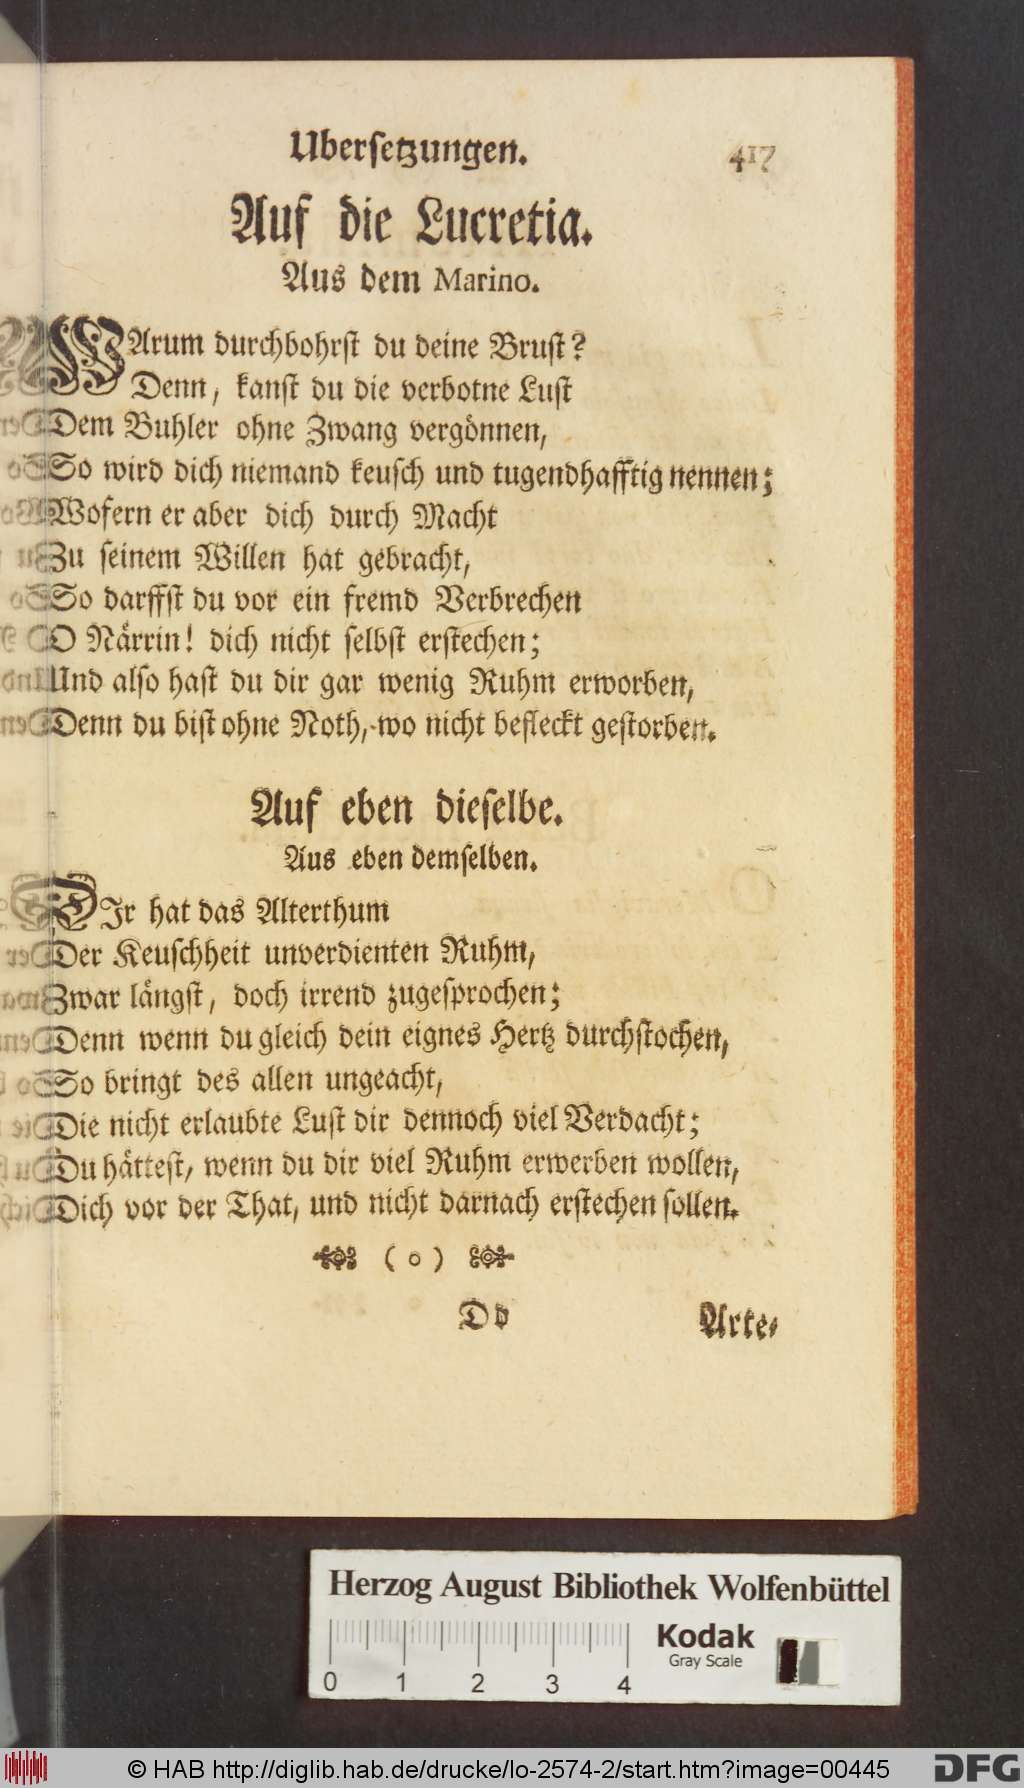 Ubersetzungen. 417
Auf die Lucretia.
Aus dem Marino.
WArum durchbohrst du deine Brust?
Denn, kanst du die verbotne Lust
Dem Buhler ohne Zwang vergönnen,
So wird dich niemand keusch und tugendhafftig nennen;
Wofern er aber dich durch Macht
Zu seinem Willen hat gebracht,
So darffst du vor ein fremd Verbrechen
O Närrin! dich nicht selbst erstechen;
Und also hast du dir gar wenig Ruhm erworben,
Denn du bist ohne Noth, wo nicht befleckt gestorben.
Auf eben dieselbe.
Aus eben demselben.
DIr hat das Alterthum
Der Keuschheit unverdienten Ruhm,
Zwar längst, doch irrend zugesprochen;
Denn wenn du gleich dein eignes Hertz durchstochen,
So bringt des allen ungeacht,
Die nicht erlaubte Lust dir dennoch viel Verdacht;
Du hättest, wenn du dir viel Ruhm erwerben wollen,
Dich vor der That, und nicht darnach erstechen sollen.
( o )
Dd Arte-
Herzog August Bibliothek Wolfenbüttel
Kodak
Gray Scale
0 1 2 3 4
© HAB http://diglib.hab.de/drucke/lo-2574-2/start.htm?image=00445
DFG